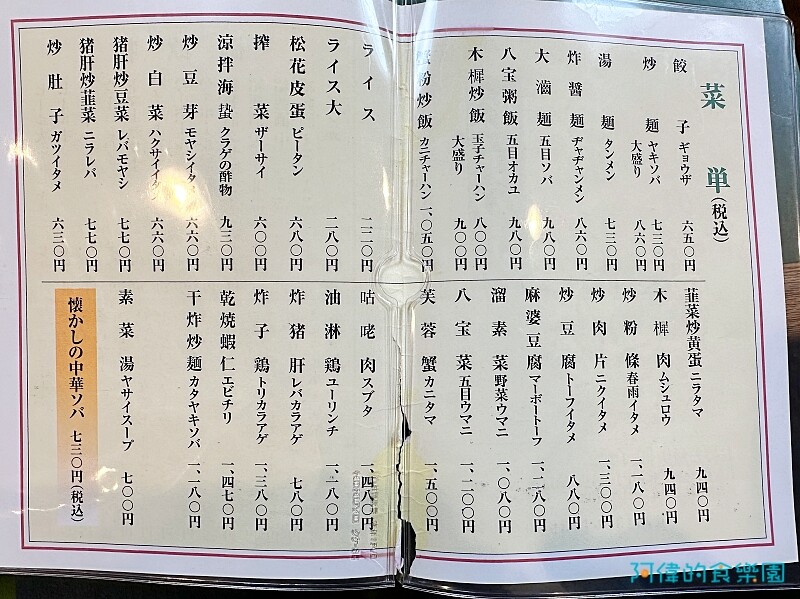 菜単(税込)
餃子 ギョウザ 六五〇円
炒麺 ヤキソバ 七三〇円
大盛り 八六〇円
湯麺 タンメン 七三〇円
炸醤麺 ヂャヂャンメン 八六〇円
大滷麺 五目ソバ 九八〇円
八宝粥飯 五目オカユ 九八〇円
木樨炒飯 玉子チャーハン 八〇〇円
大盛り 九〇〇円
粉炒飯 カニチャーハン 一、〇五〇円
ライス 二二〇円
ライス大 二八〇円
松花皮蛋 ピータン 六八〇円
搾菜 ザーサイ 六〇〇円
涼拌海蜇 クラゲの酢物 九三〇円
炒豆芽 モヤシイタメ 六六〇円
炒白菜 ハクサイイタメ 六六〇円
猪肝炒豆菜 レバモヤシ 七七〇円
猪肝炒韮菜 ニラレバ 七七〇円
炒肚子 ガツイタメ 六三〇円
韮菜炒黄蛋 ニラタマ 九四〇円
木樨肉 ムシュロウ 九四〇円
炒粉條 春雨イタメ 一、一八〇円
炒肉片 ニクイタメ 一、三〇〇円
炒豆腐 トーフイタメ 八八〇円
麻婆豆腐 マーボートーフ 一、二八〇円
溜素菜 野菜ウマニ 一、〇八〇円
八宝菜 五目ウマニ 一、二〇〇円
芙蓉蟹 カニタマ 一、五〇〇円
咕咾肉 スブタ 一、四八〇円
油淋鶏 ユーリンチ 一、二八〇円
炸猪肝 レバカラアゲ 七八〇円
炸子鶏 トリカラアゲ 一、三八〇円
乾焼蝦仁 エビチリ 一、四七〇円
干炸炒麺 カタヤキソバ 一、一八〇円
素菜湯 ヤサイスープ 七〇〇円
懐かしの中華ソバ 七三〇円(税込)
阿偉的食樂園